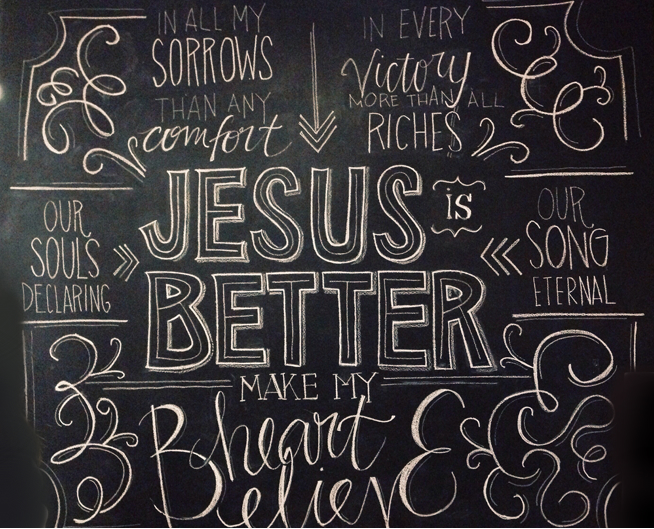 IN ALL MY
SORROWS
THAN ANY
comfort
IN EVERY
Victory
MORE THAN ALL
RICHES
JESUS is
BETTER
OUR
SOULS
DECLARING
OUR
SONG
ETERNAL
MAKE MY
heart
BeliEvE